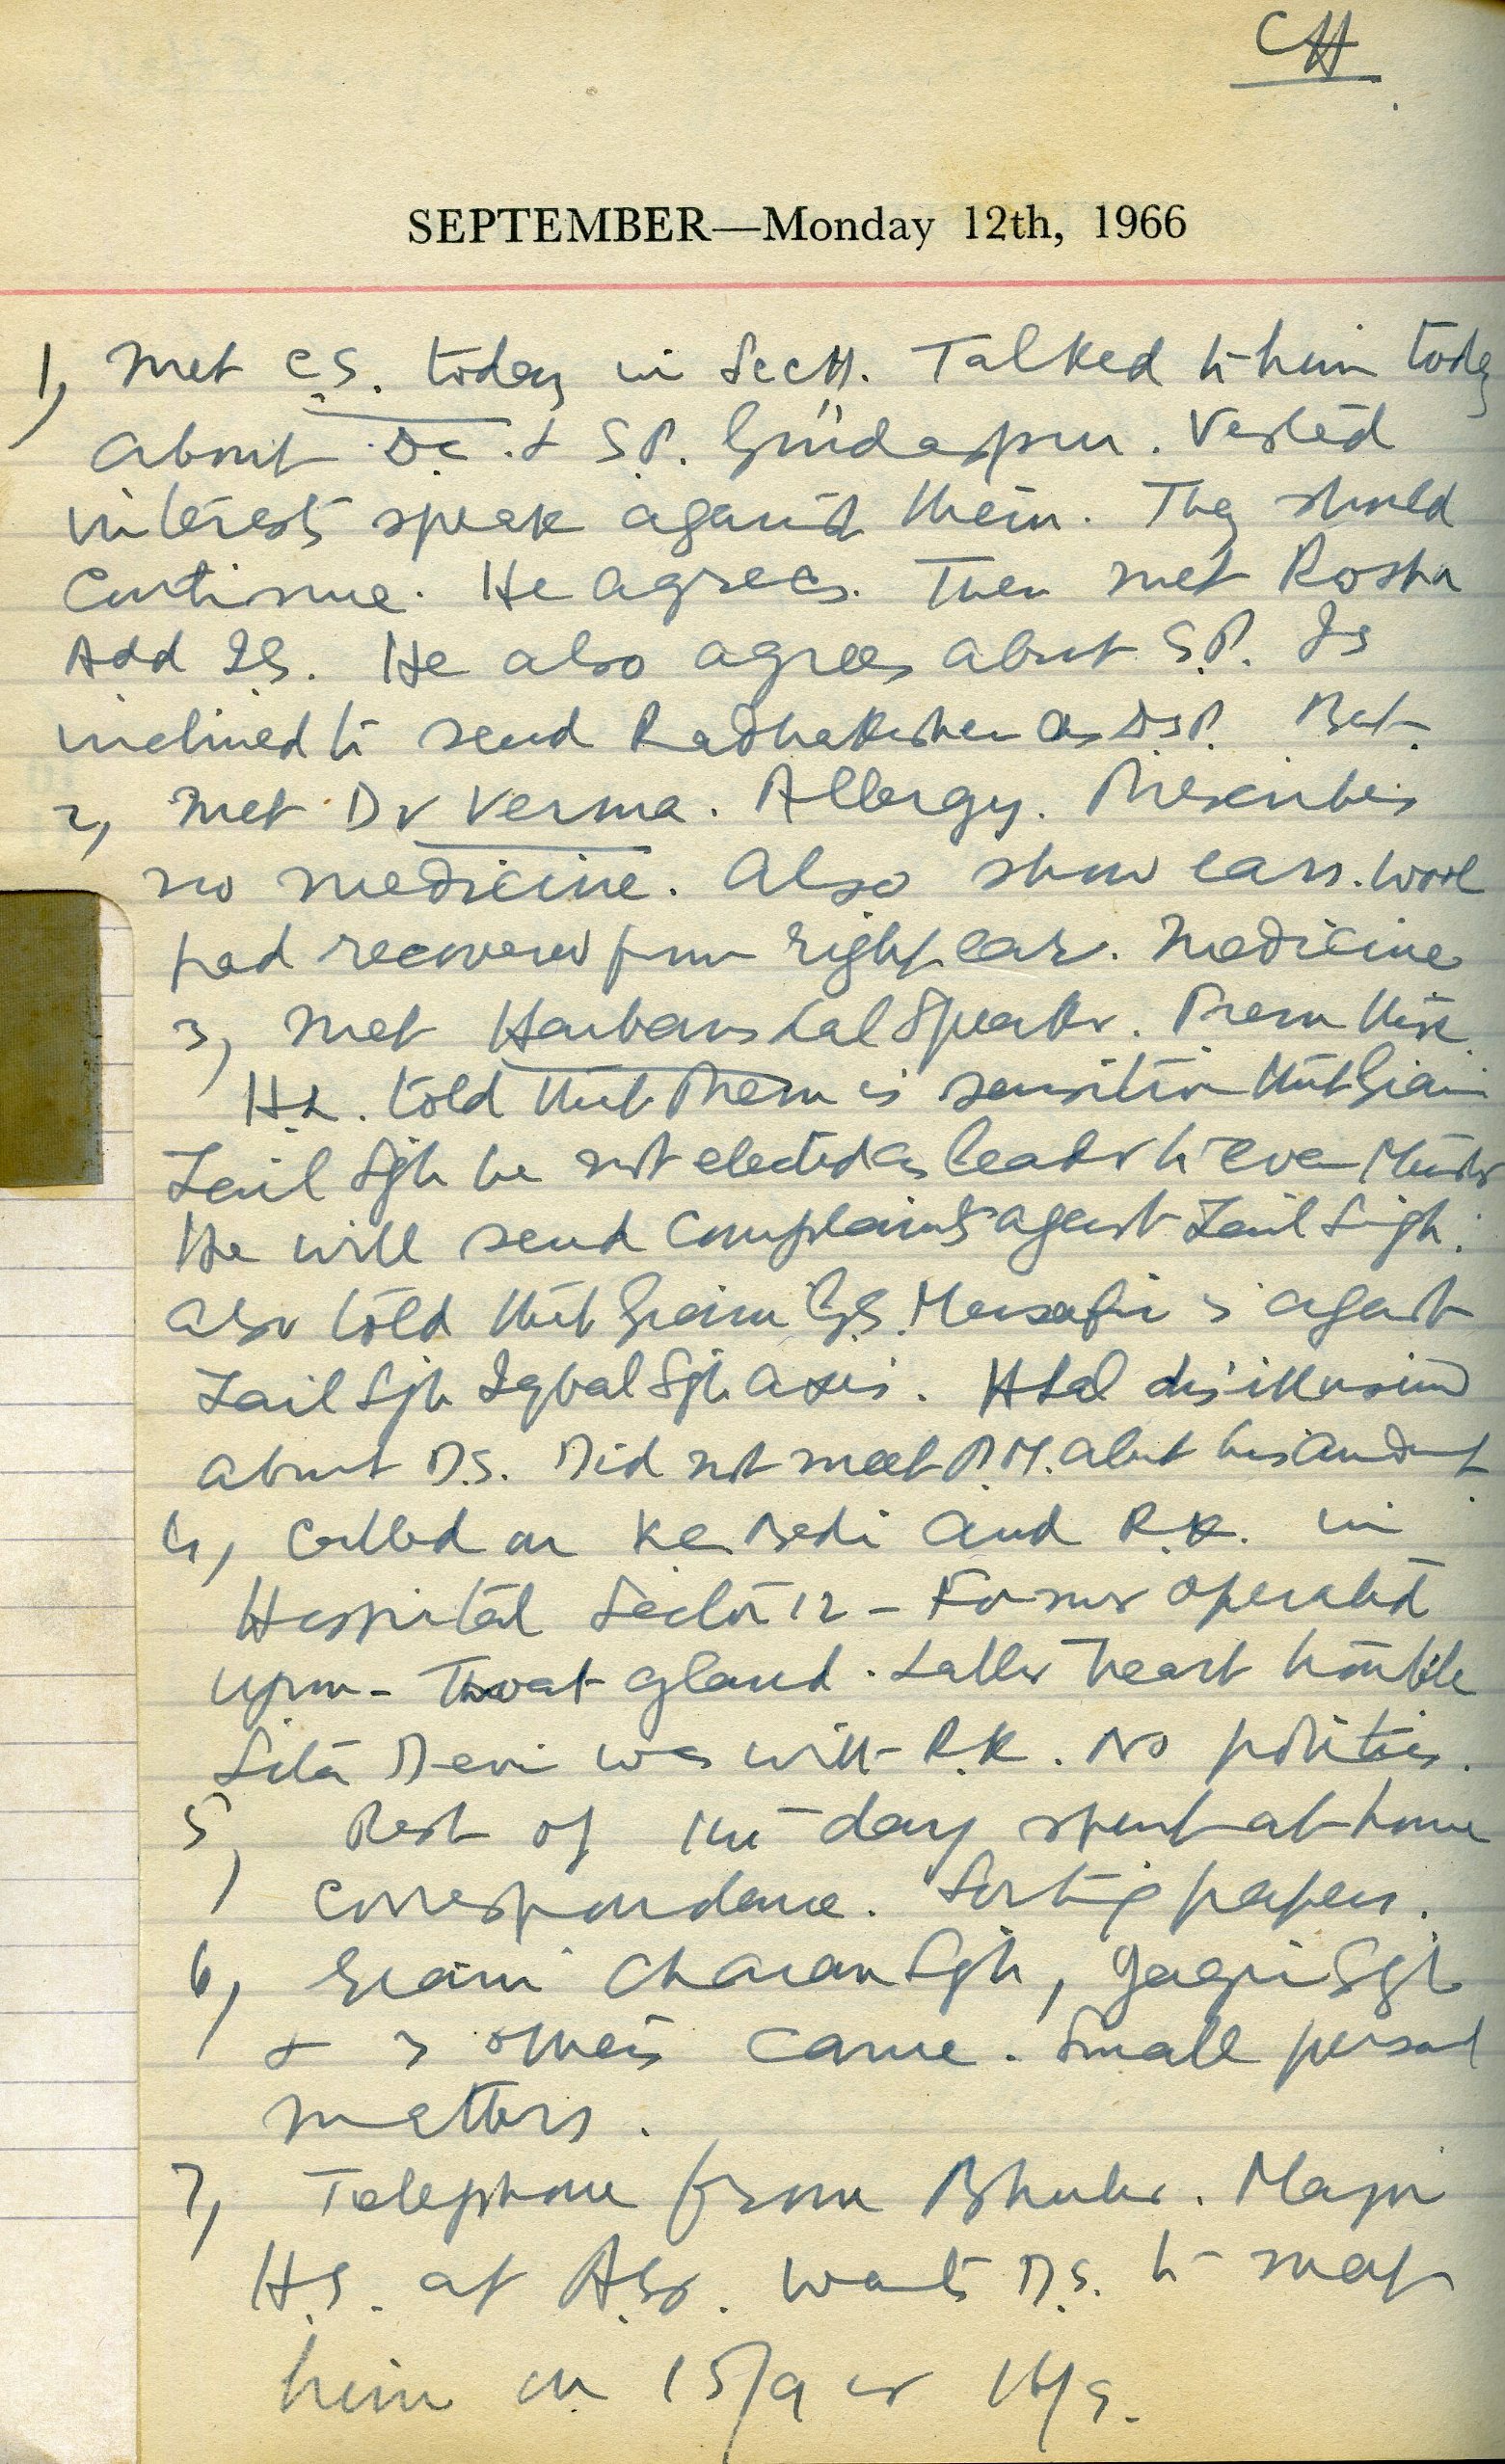 CH
SEPTEMBER—Monday 12th, 1966
1, Met C.S. today in Sectt. Talked to him today
about D.C. & S.P. Gurdaspur. Vested
interests speak against them. They should
continue. He agrees. Then met Rosha
Add IG. He also agrees about S.P. Is
inclined to send Radhakishen as DSP.
2, Met Dr Verma. Allergy. Prescribes
no medicine. Also show ears. Wool
pad recovered from right ear. Medicine
3, Met Harbans Lal Speaker. Prem
H.L. told that Prem is sensitive that Giani
Zail Sgh be not elected as leader or even Minister
He will send complaints against Zail Singh.
Also told that Giani G.S. Musafir is against
Zail Sgh Iqbal Sgh axis. H Lal disillusioned
about D.S. Did not meet P.M. about his
4, Called on Bedi and R.K. in
Hospital Sector 12 - Former operated
upon - Throat gland. Latter heart trouble
Sita Devi was with R.K. No politics.
5, Rest of the day spent at home
correspondence. Sorting papers.
6, Giani Charan Sgh, Sgh
& 3 others came. Small personal
matters.
7, Telephone from Bhuler. Major
H.S. at Asr. wants D.S. to meet
him on 15/9 or 16/9.